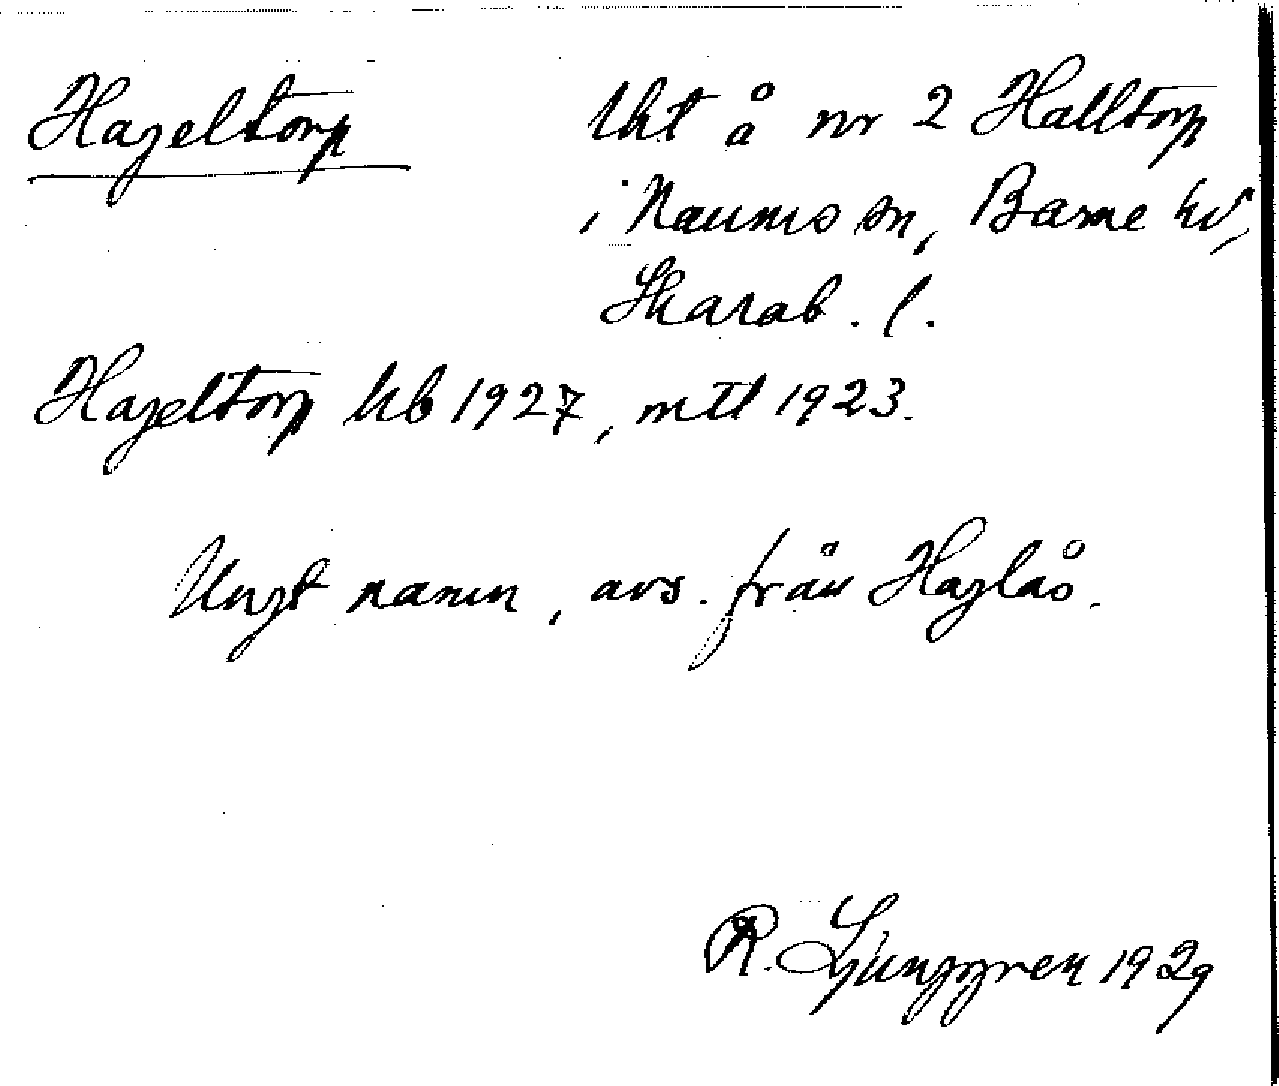 Hageltorp Uht å nr 2 Halltorp
i Naums sn, Barne hd,
Skarab. l.
Hageltorp kb 1927, mtl 1923.
Ungt namn, avs. från Haglås.
R. Ljunggren 1929